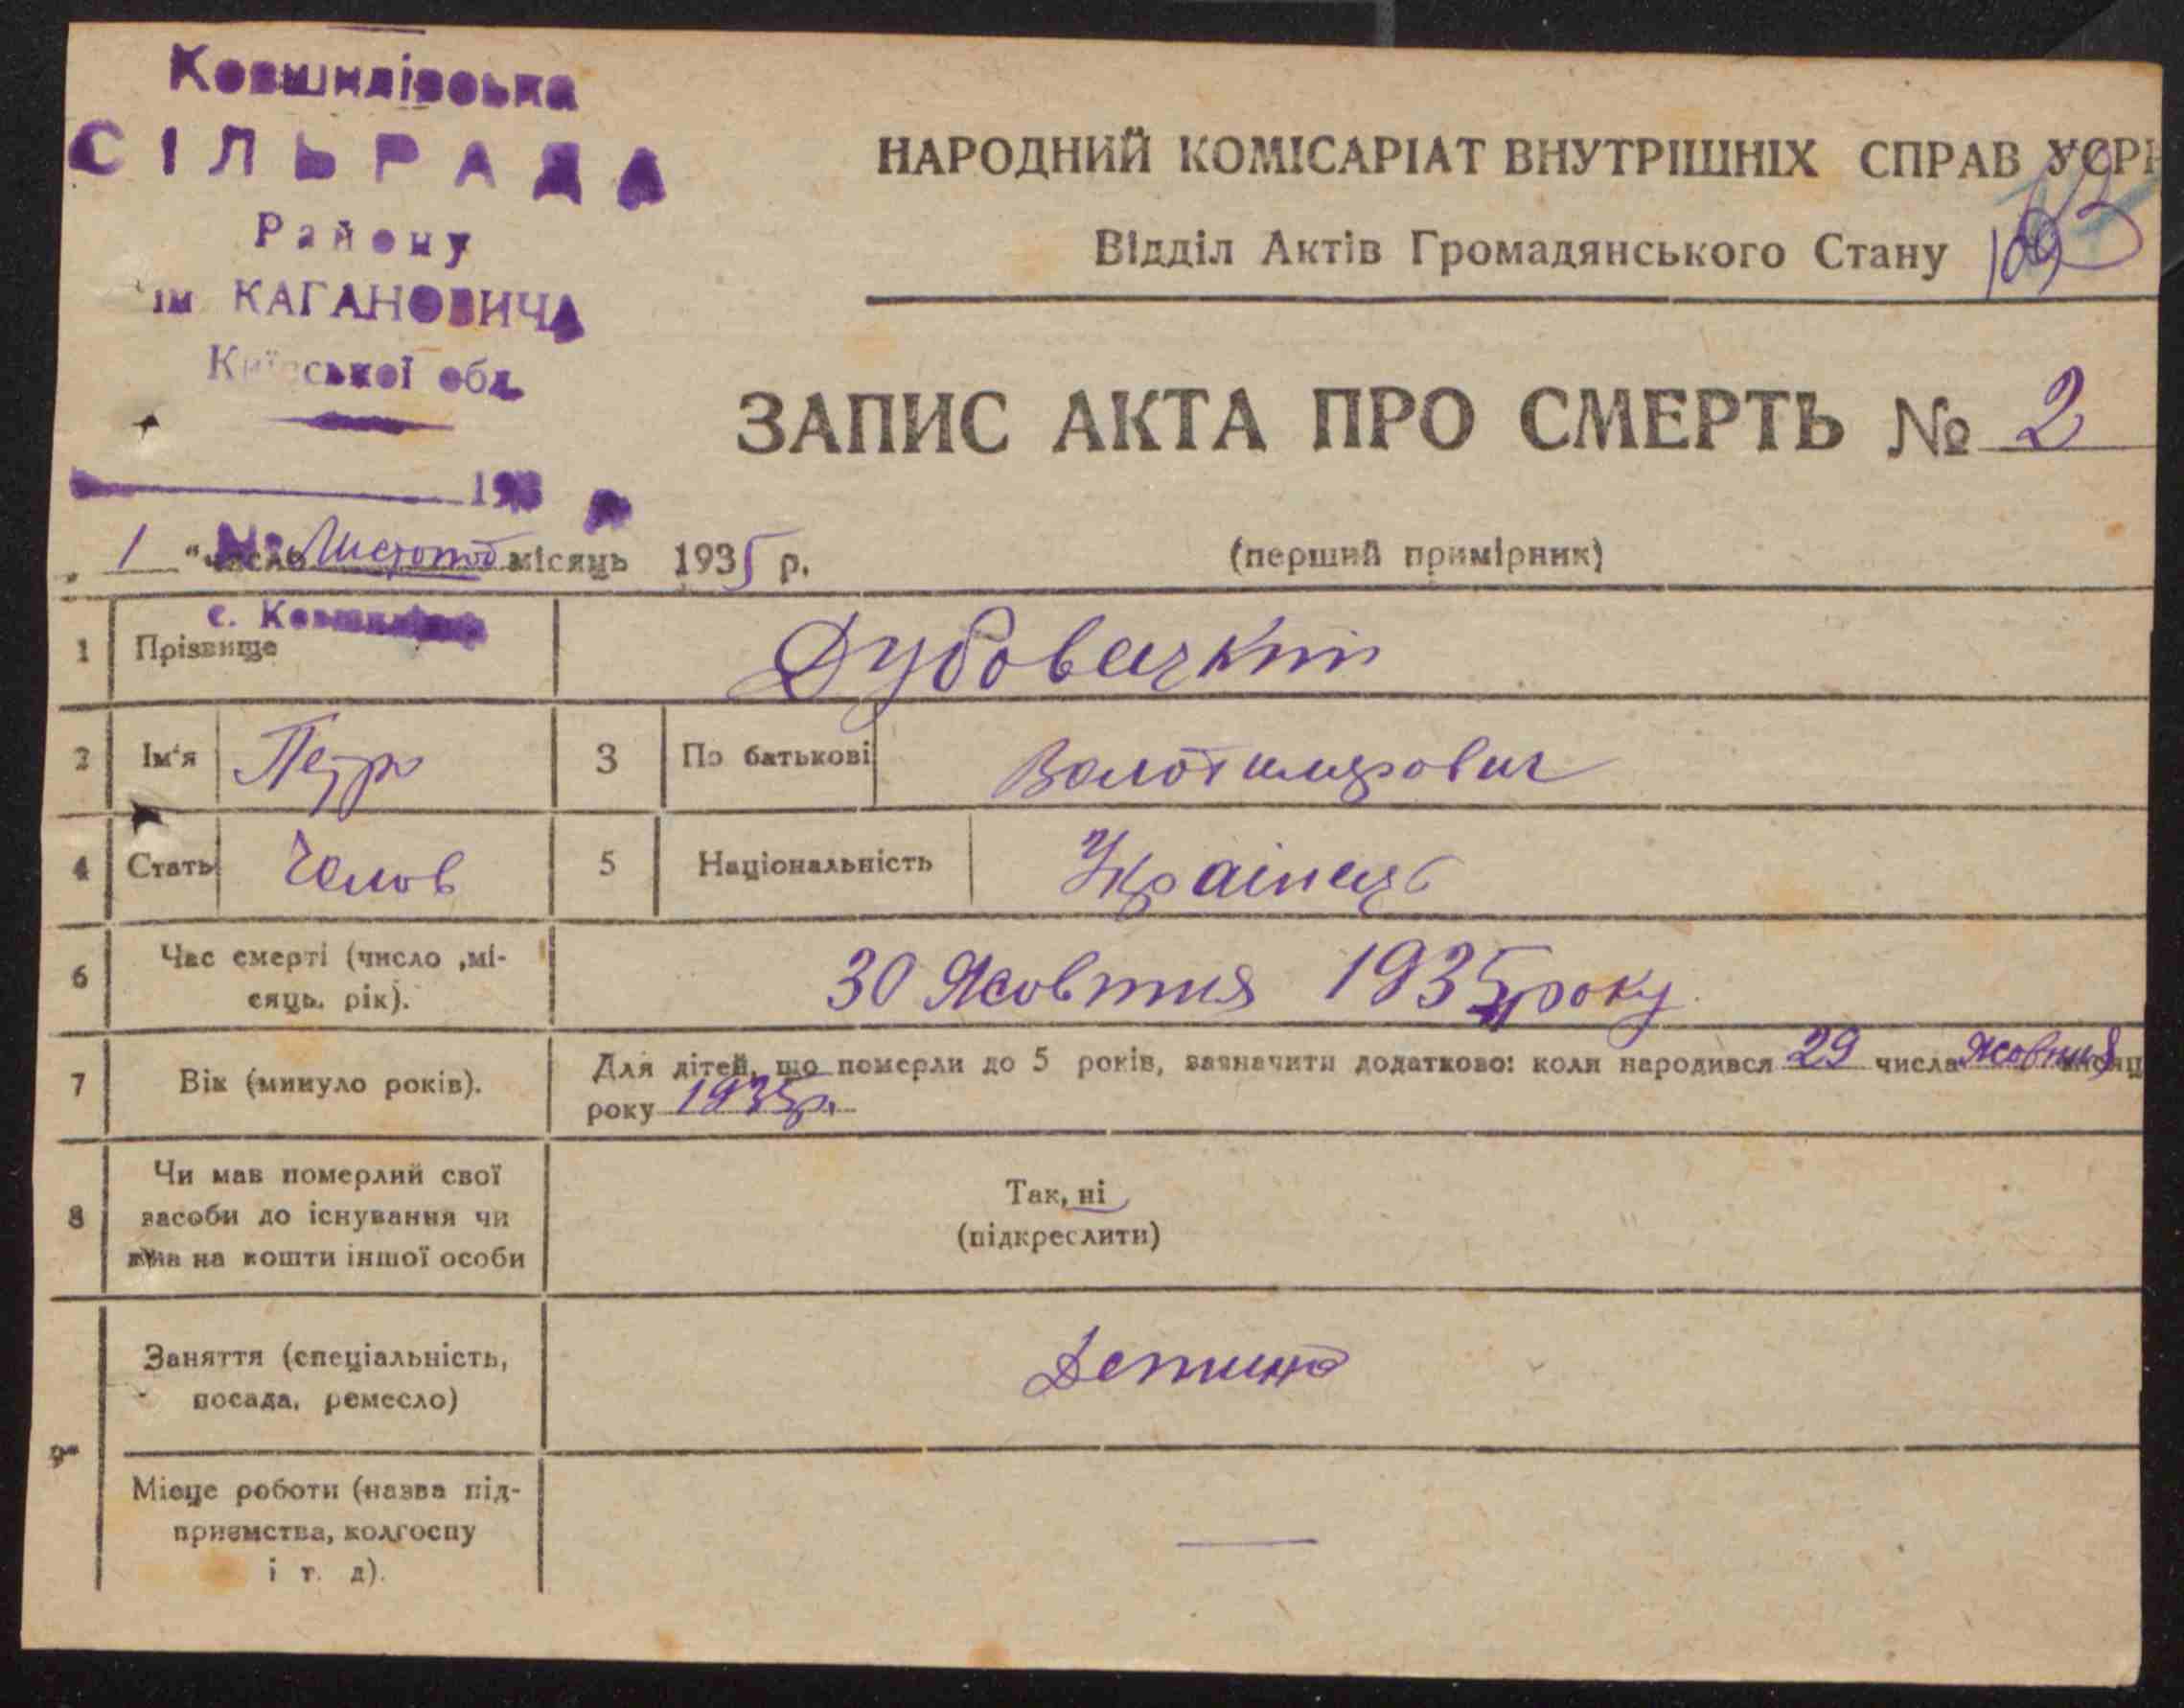 Ковшилівська
СІЛЬРАДА
Району
ім КАГАНОВИЧА
Київської обл.
193
НАРОДНИЙ КОМІСАРІАТ ВНУТРІШНІХ СПРАВ УСРР
Відділ Актів Громадянського Стану
ЗАПИС АКТА ПРО СМЕРТЬ № 2
(перший примірник)
„ 1 “ число Листопад місяць 1935 р.
1 Прізвище Дубовецкий
2 Ім'я Петро 3 По батькові Володимирович
4 Стать Чолов 5 Національність Українець
6 Час смерті (число ,мі-
сяць. рік). 30 Жовтня 1935 року
7 Вік (минуло років). Для дітей, що померли до 5 років, зазначити додатково: коли народився 29 числа Жовтня місяц
року 1935р.
8 Чи мав померлий свої
засоби до існування чи
жив на кошти іншої особи
Так, ні
(підкреслити)
9 Заняття (спеціальність,
посада, ремесло) Детина
Місце роботи (назва під-
приємства, колгоспу
і т. д). —